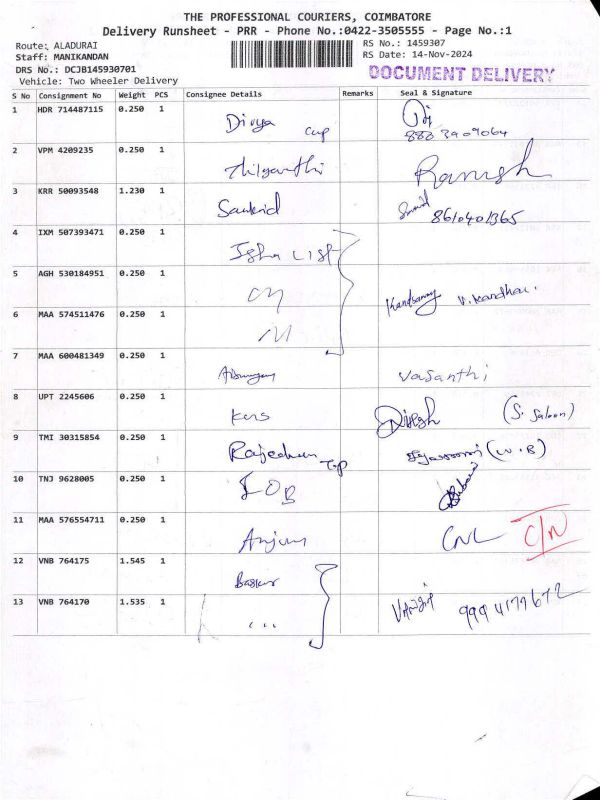 THE PROFESSIONAL COURIERS, COIMBATORE
Delivery Runsheet - PRR - Phone No.:0422-3505555 - Page No.:1
Route: ALADURAI RS No.: 1459307
Staff: MANIKANDAN RS Date: 14-Nov-2024
DRS No.: DCJB145930701 DOCUMENT DELIVERY
Vehicle: Two Wheeler Delivery
S No Consignment No Weight PCS Consignee Details Remarks Seal & Signature
1 HDR 714487115 0.250 1 Divya cup
2 VPM 4209235 0.250 1 Ramesh
3 KRR 50093548 1.230 1 8610401365
4 IXM 507393471 0.250 1 Isha List
5 AGH 530184951 0.250 1 Kandsamy V. Kandhar.
6 MAA 574511476 0.250 1
7 MAA 600481349 0.250 1 Vasanthi
8 UPT 2245606 0.250 1 Dinesh (S. Saloon)
9 TMI 30315854 0.250 1 (W.B)
10 TNJ 9628005 0.250 1 IOB
11 MAA 576554711 0.250 1 Anjum CNL C/N
12 VNB 764175 1.545 1 Baskar
13 VNB 764170 1.535 1 9994177672